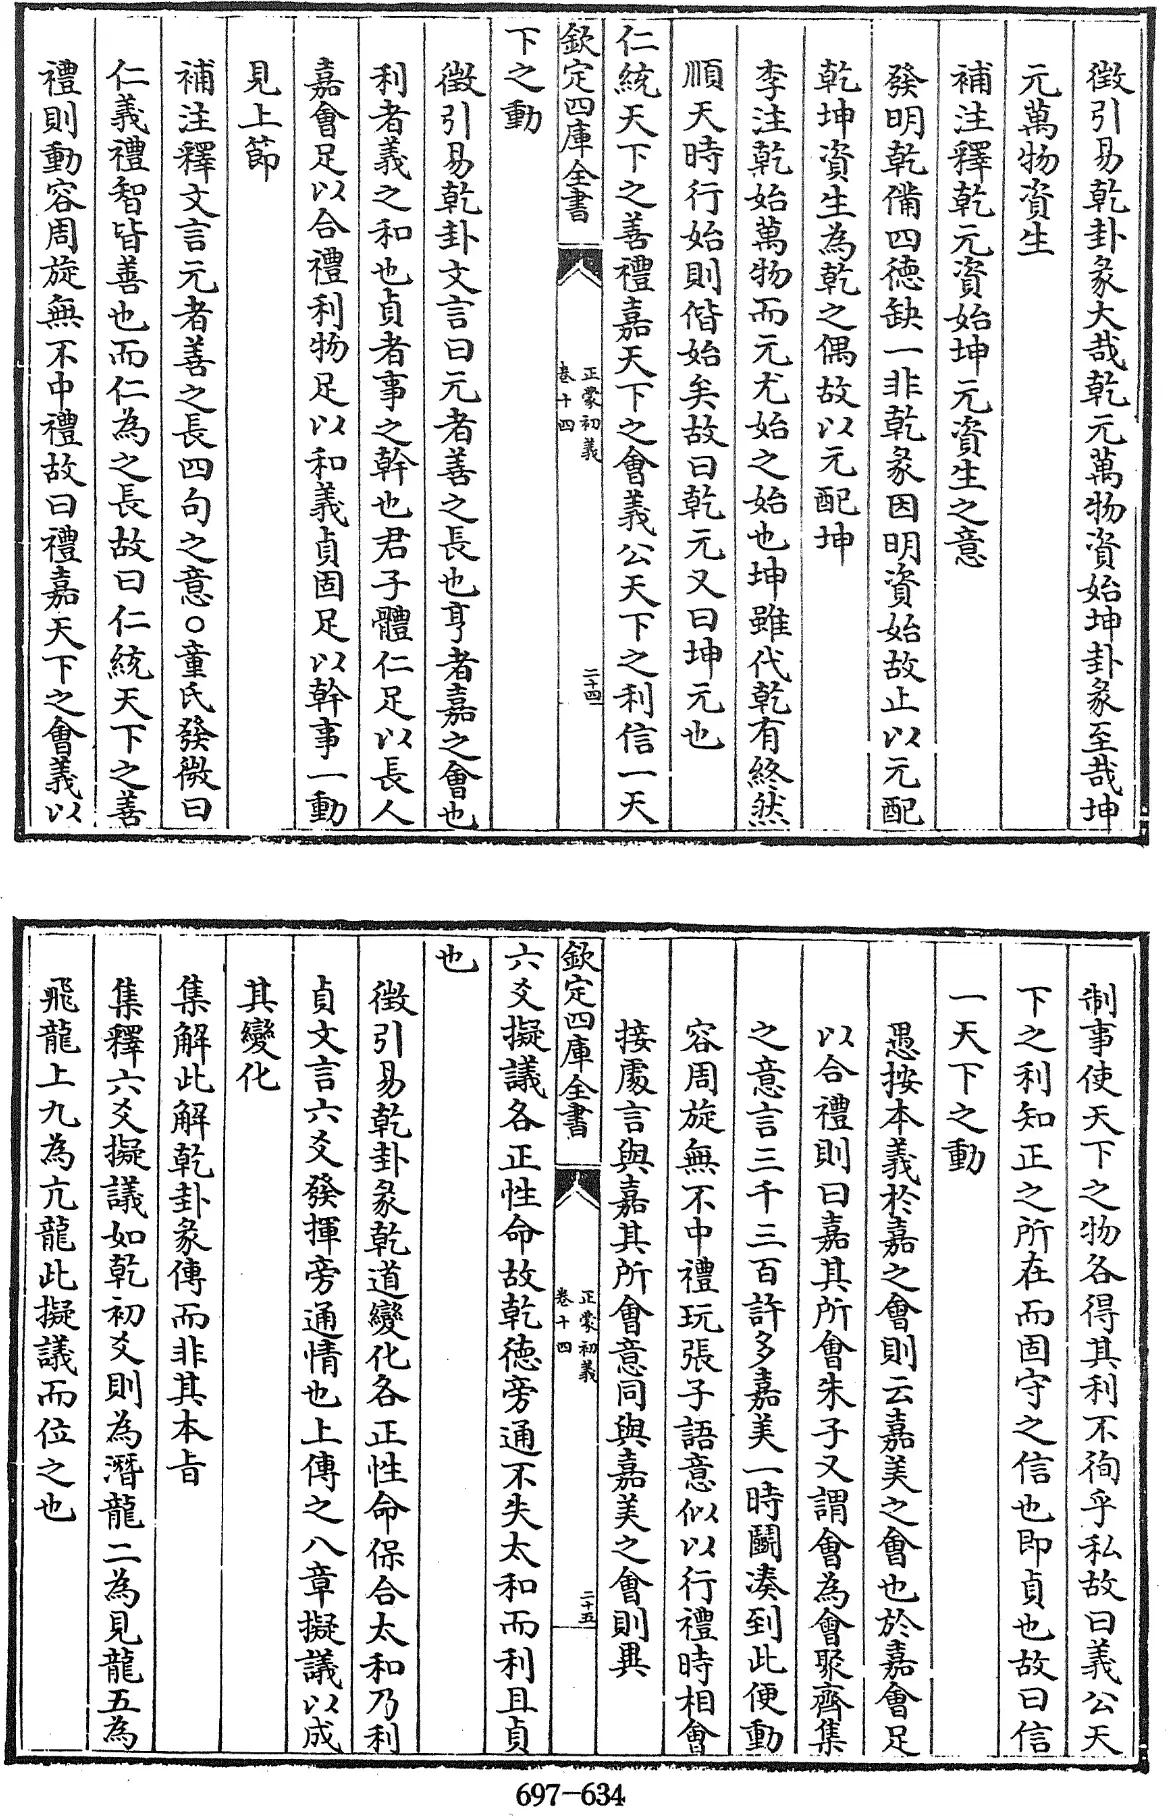 徴引易乾卦彖大哉乾元萬物資始坤卦彖至哉坤
元萬物資生
補注釋乾元資始坤元資生之意
發明乾備四徳缺一非乾彖因明資始故止以元配
乾坤資生為乾之偶故以元配坤
李注乾始萬物而元尤始之始也坤雖代乾有終然
順天時行始則偕始矣故曰乾元又曰坤元也
仁統天下之善禮嘉天下之會義公天下之利信一天
欽定四庫全書
正蒙初義
卷十四
二十四
下之動
徴引易乾卦文言曰元者善之長也亨者嘉之會也
利者義之和也貞者事之幹也君子體仁足以長人
嘉會足以合禮利物足以和義貞固足以幹事一動
見上節
補注釋文言元者善之長四句之意○童氏發微曰
仁義禮智皆善也而仁為之長故曰仁統天下之善
禮則動容周旋無不中禮故曰禮嘉天下之會義以
制事使天下之物各得其利不徇乎私故曰義公天
下之利知正之所在而固守之信也即貞也故曰信
一天下之動
愚按本義於嘉之會則云嘉美之會也於嘉會足
以合禮則曰嘉其所會朱子又謂會為會聚齊集
之意言三千三百許多嘉美一時鬭湊到此便動
容周旋無不中禮玩張子語意似以行禮時相會
接處言與嘉其所會意同與嘉美之會則異
欽定四庫全書
正蒙初義
卷十四
二十五
六爻擬議各正性命故乾徳旁通不失太和而利且貞
也
徴引易乾卦彖乾道變化各正性命保合太和乃利
貞文言六爻發揮旁通情也上傳之八章擬議以成
其變化
集解此解乾卦彖傳而非其本旨
集釋六爻擬議如乾初爻則為潛龍二為見龍五為
飛龍上九為亢龍此擬議而位之也
697-634